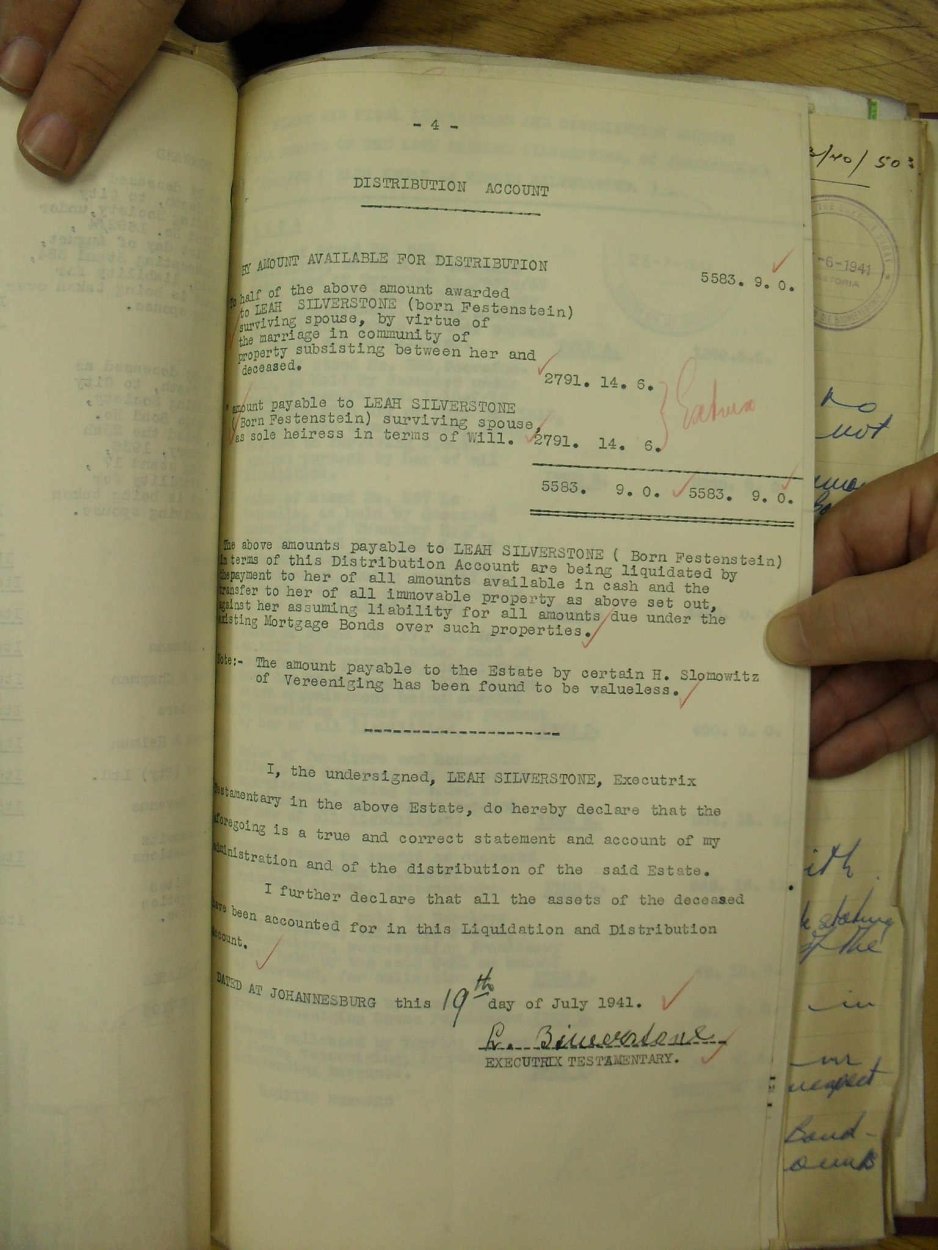 - 4 -
DISTRIBUTION ACCOUNT
BY AMOUNT AVAILABLE FOR DISTRIBUTION 5583. 9. 0.
To half of the above amount awarded
to LEAH SILVERSTONE (born Festenstein)
surviving spouse, by virtue of
the marriage in community of
property subsisting between her and
deceased. 2791. 14. 6.
amount payable to LEAH SILVERSTONE
(Born Festenstein) surviving spouse,
as sole heiress in terms of Will. 2791. 14. 6.
5583. 9. 0. 5583. 9. 0.
The above amounts payable to LEAH SILVERSTONE ( Born Festenstein)
in terms of this Distribution Account are being liquidated by
the payment to her of all amounts available in cash and the
transfer to her of all immovable property as above set out,
against her assuming liability for all amounts due under the
existing Mortgage Bonds over such properties.
Note:- The amount payable to the Estate by certain H. Slomowitz
of Vereeniging has been found to be valueless.
I, the undersigned, LEAH SILVERSTONE, Executrix
Testamentary in the above Estate, do hereby declare that the
aforegoing is a true and correct statement and account of my
administration and of the distribution of the said Estate.
I further declare that all the assets of the deceased
have been accounted for in this Liquidation and Distribution
Account.
DATED AT JOHANNESBURG this 19th day of July 1941.
L. Silverstone
EXECUTRIX TESTAMENTARY.
3/40/50
-6-1941
not
ith
of the
in
respect
Bond-